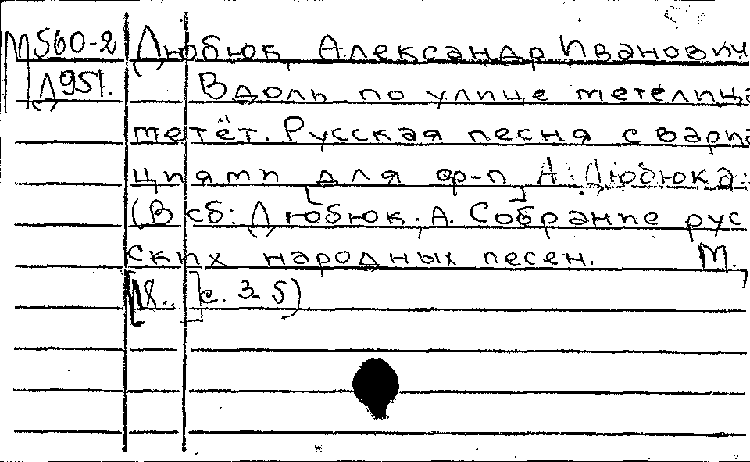 М560-2 Дюбюк, Александр Иванович
Д951. Вдоль по улице метелица
метёт. Русская песня с вариа
циями для ф-п А. Дюбюка.
(В сб: Дюбюк, А. Собрание рус
ских народных песен. М.,
[18.. ]с. 3-5)